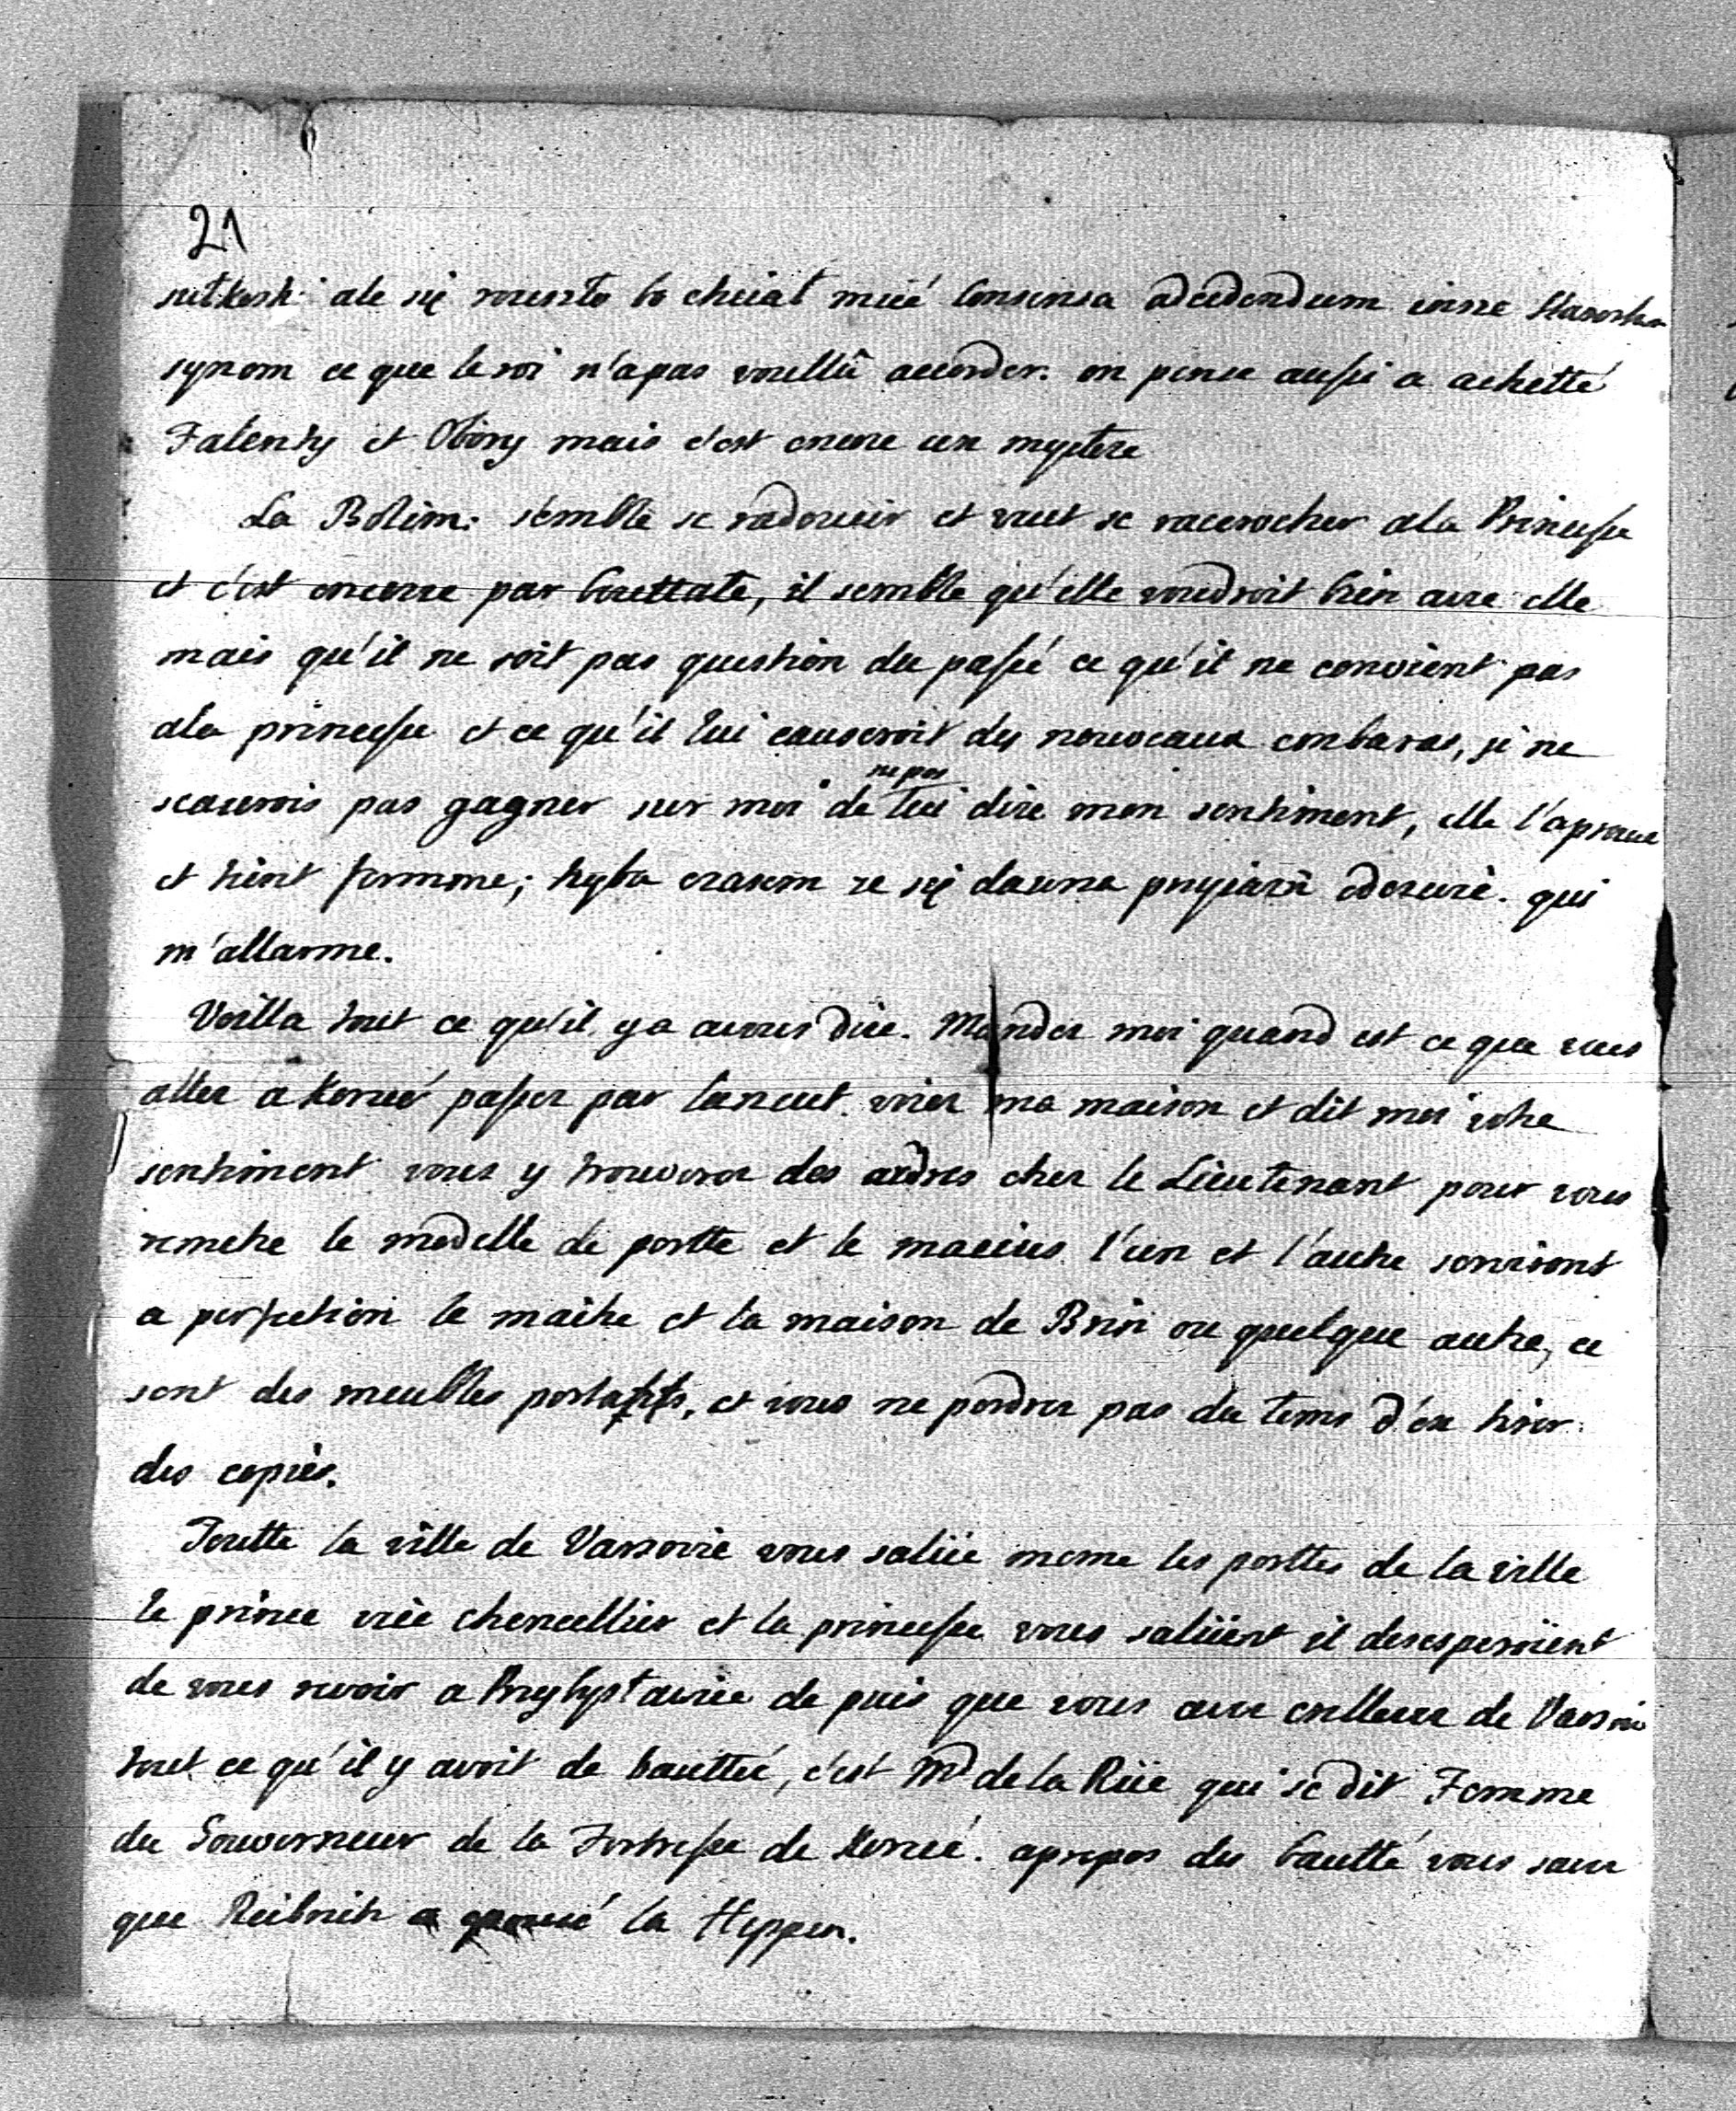 21
ale się bo chciał mieć consensa adcedendum inne Starostwa
synom ce que le roi n'a pas voullû accorder. on pense aussi a achetté
Falenty et Obory mais c'est encore un mystere
La Bolim: semble se radoucir et veut se raccrocher ala Princesse
et c'est encorre par bouttate, il semble qu'elle voudroit bien avec elle
mais qu'il ne soit pas question du passé ce qu'il ne convient pas
ala princesse et ce qu'il lui causeroit des nouveaux embaras, je ne
scaurois pas gagner sur moi de ne pas lui dire mon sentiment, elle l'aprouve
et tient fermme; chyba czasem ze się dawna przyiazń odezwie. qui
m'allarme.
Voilla tout ce qu'il y a avous dire. Mander moi quand est ce que vous
aller a passer par Lancut. voier ma maison et dit moi votre
sentiment vous y trouveroe des ordres cher le Lieutenant pour vous
remetre le modelle de portte et le l'un et l'autre serviront
a perfection le maitre et la maison de ou quelque autre, ce
sont des meubles portatifs, et vous ne perdrer pas du tems d'en tirer
des copiès.
Toutte la ville de Varsovie vous salüe meme les porttes de la ville
le prince vice chencellier et la princesse vous salüent il desesperoient
de vous revoir a de puis que vous aver enllevee de Varsovie
tout ce qu'il y avoit de bautteé, c'est Md de la Rüe qui se dit Femme
du Gouverneur de la Fortresse de . apropos du bautté vous saver
que la